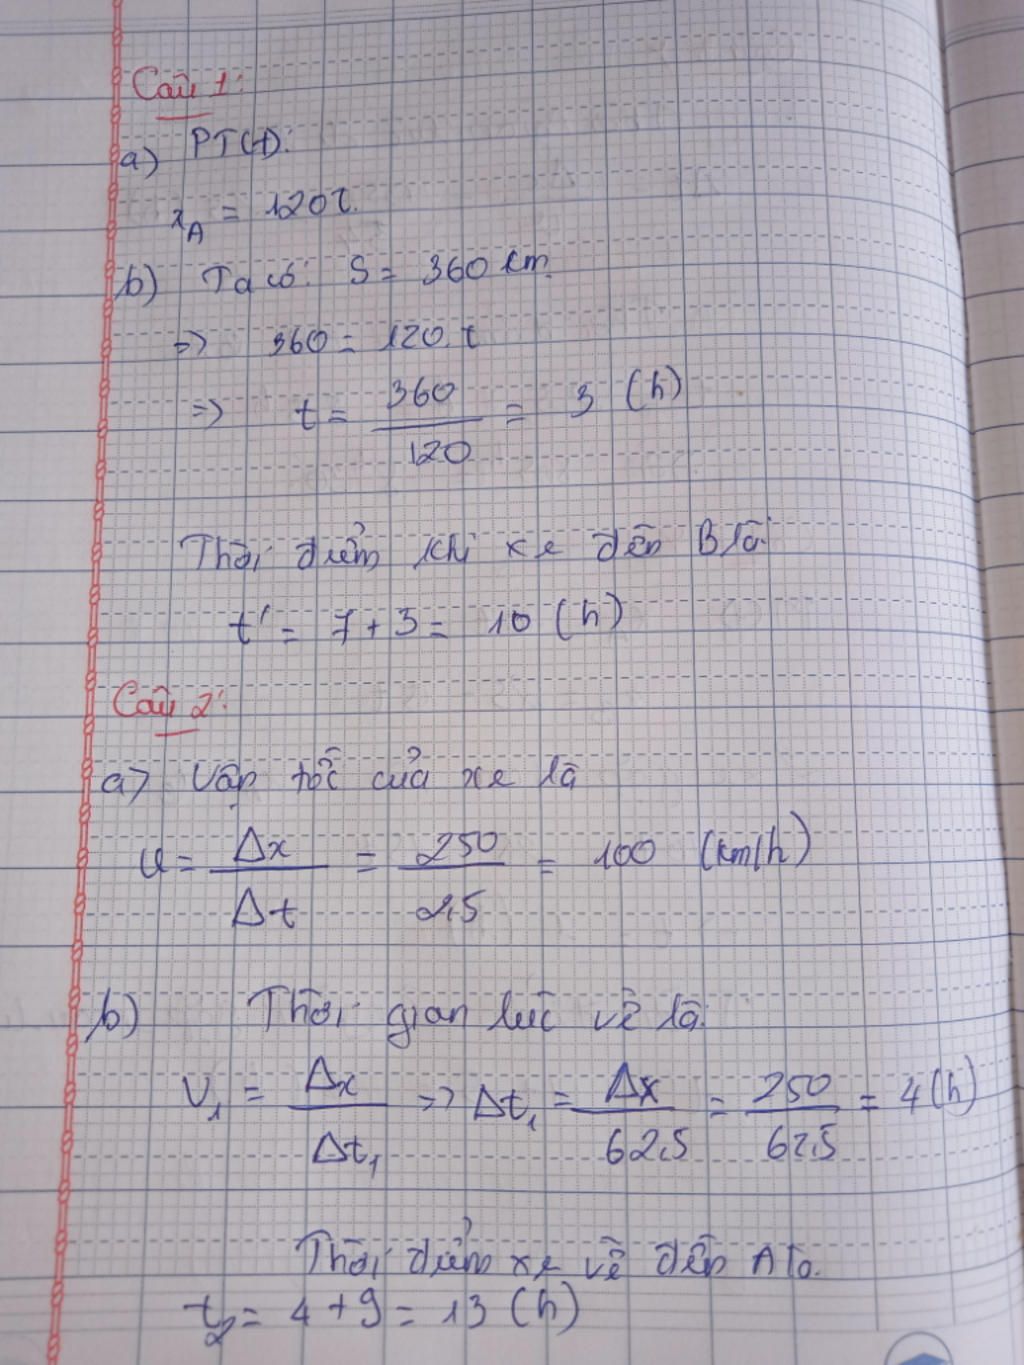 Câu 1:
a) PTCĐ:
x_A = 120t.
b) Ta có: S = 360 km.
=> 360 = 120.t
=> t = 360/120 = 3 (h)
Thời điểm khi xe đến B là:
t' = 7 + 3 = 10 (h)
Câu 2:
a) Vận tốc của xe là
v = Δx/Δt = 250/2,5 = 100 (km/h)
b) Thời gian lúc về là:
V₁ = Δx/Δt₁ => Δt₁ = Δx/62,5 = 250/62,5 = 4 (h)
Thời điểm xe về đến A là.
t₂ = 4 + 9 = 13 (h)